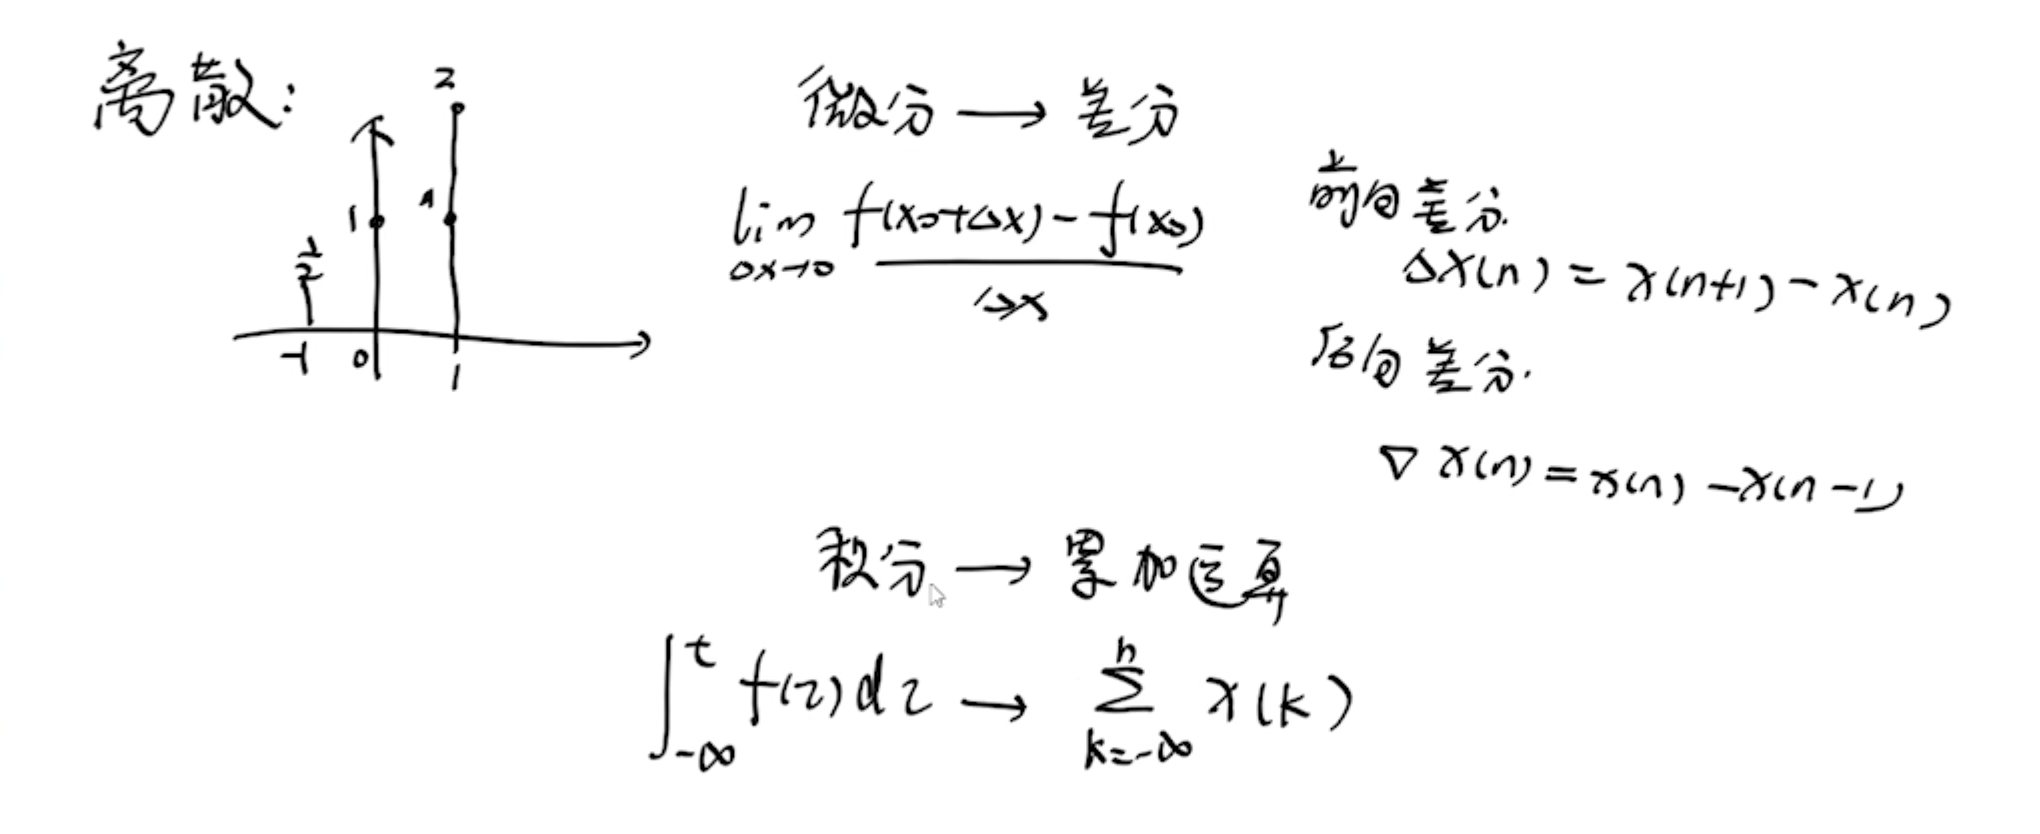 离散:
2
1
1
1/2
-1 0 1
微分 → 差分
lim Δx→0 f(x₀+Δx)-f(x₀) / Δx
前向差分.
Δx(n) = x(n+1) - x(n)
后向差分.
∇x(n) = x(n) - x(n-1)
积分 → 累加运算
∫_{-∞}^{t} f(τ)dτ → ∑_{k=-∞}^{n} x(k)